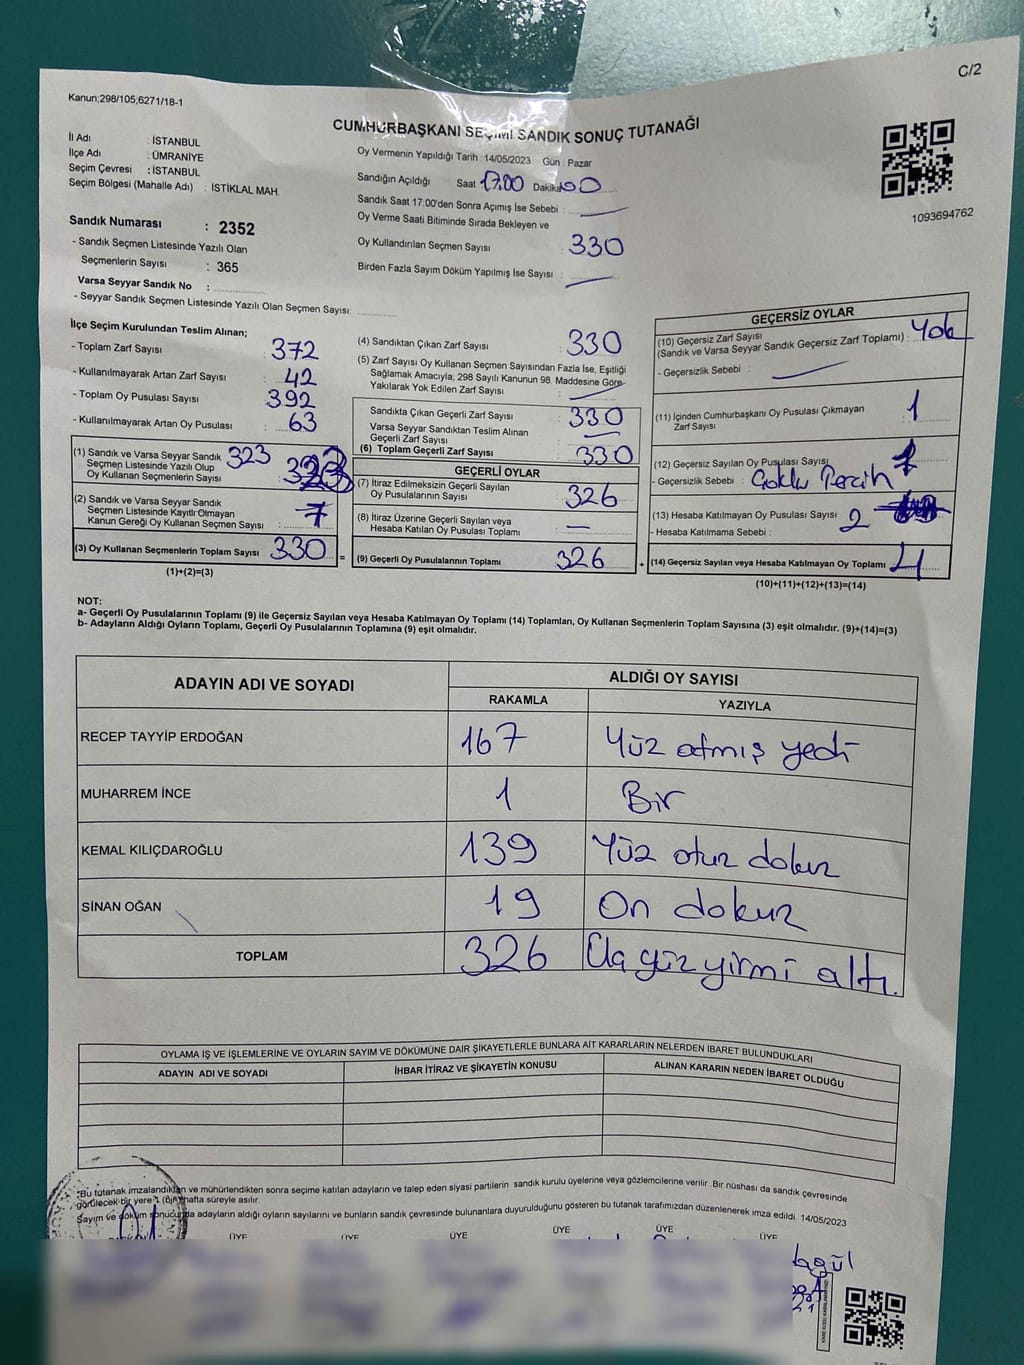 C/2
Kanun;298/105;6271/18-1
CUMHURBAŞKANI SEÇİMİ SANDIK SONUÇ TUTANAĞI
İl Adı : İSTANBUL
İlçe Adı : ÜMRANİYE
Seçim Çevresi : İSTANBUL
Seçim Bölgesi (Mahalle Adı) : İSTİKLAL MAH.
Oy Vermenin Yapıldığı Tarih : 14/05/2023 Gün : Pazar
Sandığın Açıldığı Saat 17.00 Dakika 00
Sandık Saat 17:00'den Sonra Açımış İse Sebebi :
Oy Verme Saati Bitiminde Sırada Bekleyen ve
Oy Kullandırılan Seçmen Sayısı : 330
Birden Fazla Sayım Döküm Yapılmış İse Sayısı :
1093694762
Sandık Numarası : 2352
- Sandık Seçmen Listesinde Yazılı Olan
Seçmenlerin Sayısı : 365
Varsa Seyyar Sandık No :
- Seyyar Sandık Seçmen Listesinde Yazılı Olan Seçmen Sayısı:
İlçe Seçim Kurulundan Teslim Alınan;
- Toplam Zarf Sayısı : 372
- Kullanılmayarak Artan Zarf Sayısı : 42
- Toplam Oy Pusulası Sayısı : 392
- Kullanılmayarak Artan Oy Pusulası : 63
(1) Sandık ve Varsa Seyyar Sandık 323
Seçmen Listesinde Yazılı Olup
Oy Kullanan Seçmenlerin Sayısı : 323
(2) Sandık ve Varsa Seyyar Sandık
Seçmen Listesinde Kayıtlı Olmayan
Kanun Gereği Oy Kullanan Seçmen Sayısı : 7
(3) Oy Kullanan Seçmenlerin Toplam Sayısı : 330 =
(1)+(2)=(3)
(4) Sandıktan Çıkan Zarf Sayısı : 330
(5) Zarf Sayısı Oy Kullanan Seçmen Sayısından Fazla İse, Eşitliği
Sağlamak Amacıyla, 298 Sayılı Kanunun 98. Maddesine Göre
Yakılarak Yok Edilen Zarf Sayısı :
Sandıkta Çıkan Geçerli Zarf Sayısı : 330
Varsa Seyyar Sandıktan Teslim Alınan
Geçerli Zarf Sayısı :
(6) Toplam Geçerli Zarf Sayısı : 330
GEÇERLİ OYLAR
(7) İtiraz Edilmeksizin Geçerli Sayılan
Oy Pusulalarının Sayısı : 326
(8) İtiraz Üzerine Geçerli Sayılan veya
Hesaba Katılan Oy Pusulası Toplamı : —
(9) Geçerli Oy Pusulalarının Toplamı : 326 +
GEÇERSİZ OYLAR
(10) Geçersiz Zarf Sayısı
(Sandık ve Varsa Seyyar Sandık Geçersiz Zarf Toplamı) : Yok
- Geçersizlik Sebebi :
(11) İçinden Cumhurbaşkanı Oy Pusulası Çıkmayan
Zarf Sayısı : 1
(12) Geçersiz Sayılan Oy Pusulası Sayısı : 1
- Geçersizlik Sebebi : Çoklu Tercih
(13) Hesaba Katılmayan Oy Pusulası Sayısı : 2
- Hesaba Katılmama Sebebi :
(14) Geçersiz Sayılan veya Hesaba Katılmayan Oy Toplamı : 4
(10)+(11)+(12)+(13)=(14)
NOT:
a- Geçerli Oy Pusulalarının Toplamı (9) ile Geçersiz Sayılan veya Hesaba Katılmayan Oy Toplamı (14) Toplamları, Oy Kullanan Seçmenlerin Toplam Sayısına (3) eşit olmalıdır. (9)+(14)=(3)
b- Adayların Aldığı Oyların Toplamı, Geçerli Oy Pusulalarının Toplamına (9) eşit olmalıdır.
ADAYIN ADI VE SOYADI ALDIĞI OY SAYISI
RAKAMLA YAZIYLA
RECEP TAYYİP ERDOĞAN 167 Yüz atmış yedi
MUHARREM İNCE 1 Bir
KEMAL KILIÇDAROĞLU 139 Yüz otuz dokuz
SİNAN OĞAN 19 On dokuz
TOPLAM 326 Üç yüz yirmi altı.
OYLAMA İŞ VE İŞLEMLERİNE VE OYLARIN SAYIM VE DÖKÜMÜNE DAİR ŞİKAYETLERLE BUNLARA AİT KARARLARIN NELERDEN İBARET BULUNDUKLARI
ADAYIN ADI VE SOYADI İHBAR İTİRAZ VE ŞİKAYETİN KONUSU ALINAN KARARIN NEDEN İBARET OLDUĞU
*Bu tutanak imzalandıktan ve mühürlendikten sonra seçime katılan adayların ve talep eden siyasi partilerin sandık kurulu üyelerine veya gözlemcilerine verilir. Bir nüshası da sandık çevresinde
görülecek bir yere 1 (bir) hafta süreyle asılır.
Sayım ve döküm sonucunda adayların aldığı oyların sayılarını ve bunların sandık çevresinde bulunanlara duyurulduğunu gösteren bu tutanak tarafımızdan düzenlenerek imza edildi. 14/05/2023
ÜYE ÜYE ÜYE ÜYE ÜYE ÜYE